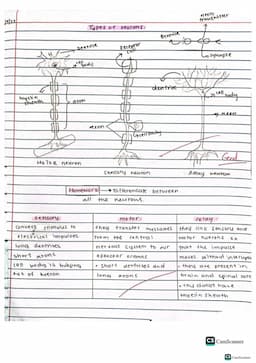 Types of neurons:
neuro
transmitter
Dendrite
Receptor
cell
synapse
cell
body
dendrite
cell body
myelin
sheath
axon
axon
cell body
axon
Motor neuron
sensory neuron
Relay neuron
Homework → Differentiate between
all the neurons.
sensory: motor: relay:
convert stimulus to they transfer messages they link sensory and
electrical impulses from the central motor neurons so
long dendrites nervous system to our that the impulse
short axons effector organs moves without interruption
cell body is halfway • short dendrites and • they are present in
out of neuron long axons brain and spinal cord
• they do not have
myelin sheath
CS CamScanner
CS CamScanner